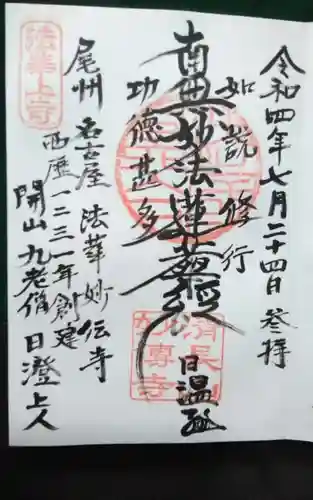 令和四年七月二十四日 参拝
如説修行
南無妙法蓮華経
日温
功徳甚多
尾州 名古屋 法華妙伝寺
西暦一二三一年創建
開山 九老僧 日澄上人